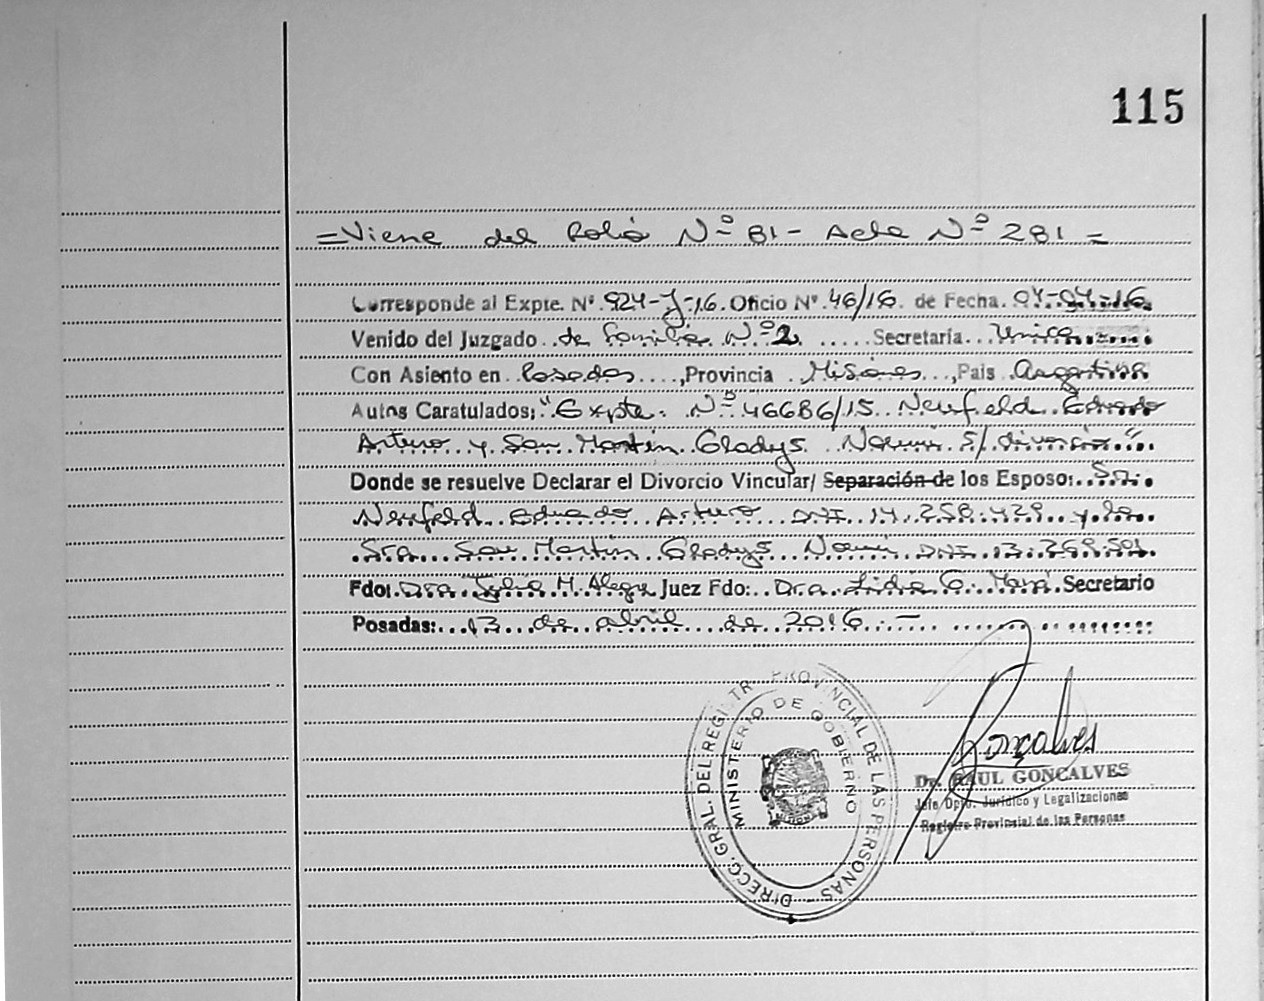 115
=Viene del Folio Nº 81 - Acta Nº 281=
Corresponde al Expte. Nº 924-J-16. Oficio Nº 46/16 de Fecha 04-04-16
Venido del Juzgado de Familia Nº 2 Secretaría Unica
Con Asiento en Posadas, Provincia Misiones, Pais Argentina
Autos Caratulados: "Expte. Nº 46686/15 Neufeld Eduardo
Arturo y San Martin Gladys Noemi S/ divorcio".
Donde se resuelve Declarar el Divorcio Vincular/ Separación de los Esposo: Sr.
Neufeld Eduardo Arturo DNI 14.258.429 y la
Sra. San Martin Gladys Noemi DNI 13.
Fdo: Dra M. Alegre Juez Fdo: Dra. Lidia Secretario
Posadas: 13 de abril de 2016.-
DIRECC. GRAL. DEL REGISTR PROVINCIAL DE LAS PERSONAS
MINISTERIO DE GOBIERNO
Goncalves
Dr. RAUL GONCALVES
Jefe Dpto. Jurídico y Legalizaciones
Registro Provincial de las Personas